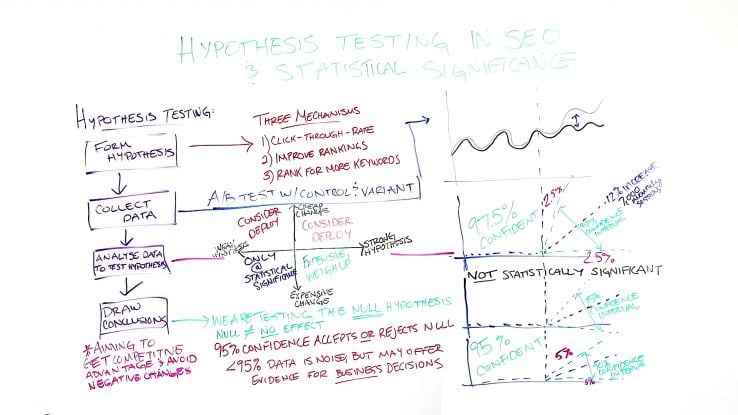 HYPOTHESIS TESTING IN SEO
& STATISTICAL SIGNIFICANCE
HYPOTHESIS TESTING:
FORM
HYPOTHESIS
COLLECT
DATA
ANALYSE DATA
TO TEST HYPOTHESIS
DRAW
CONCLUSIONS
*AIMING TO
GET COMPETITIVE
ADVANTAGE & AVOID
NEGATIVE CHANGES
THREE MECHANISMS
1) CLICK-THROUGH-RATE
2) IMPROVE RANKINGS
3) RANK FOR MORE KEYWORDS
A/B TEST W/ CONTROL & VARIANT
CHEAP
CHANGE
CONSIDER
DEPLOY
CONSIDER
DEPLOY
WEAK
HYPOTHESIS
STRONG
HYPOTHESIS
ONLY
@
STATISTICAL
SIGNIFICANCE
EXPENSIVE,
WEIGH UP
EXPENSIVE
CHANGE
WE ARE TESTING THE NULL HYPOTHESIS
NULL ≠ NO EFFECT
95% CONFIDENCE ACCEPTS OR REJECTS NULL
<95% DATA IS NOISE, BUT MAY OFFER
EVIDENCE FOR BUSINESS DECISIONS
97.5%
CONFIDENT
2.5%
95% CONFIDENCE
INTERVAL
12% INCREASE
7,000
MONTHLY
SESSIONS
2.5%
NOT STATISTICALLY SIGNIFICANT
95% CONFIDENCE
INTERVAL
95%
CONFIDENT
5%
90% CONFIDENCE
INTERVAL
5%